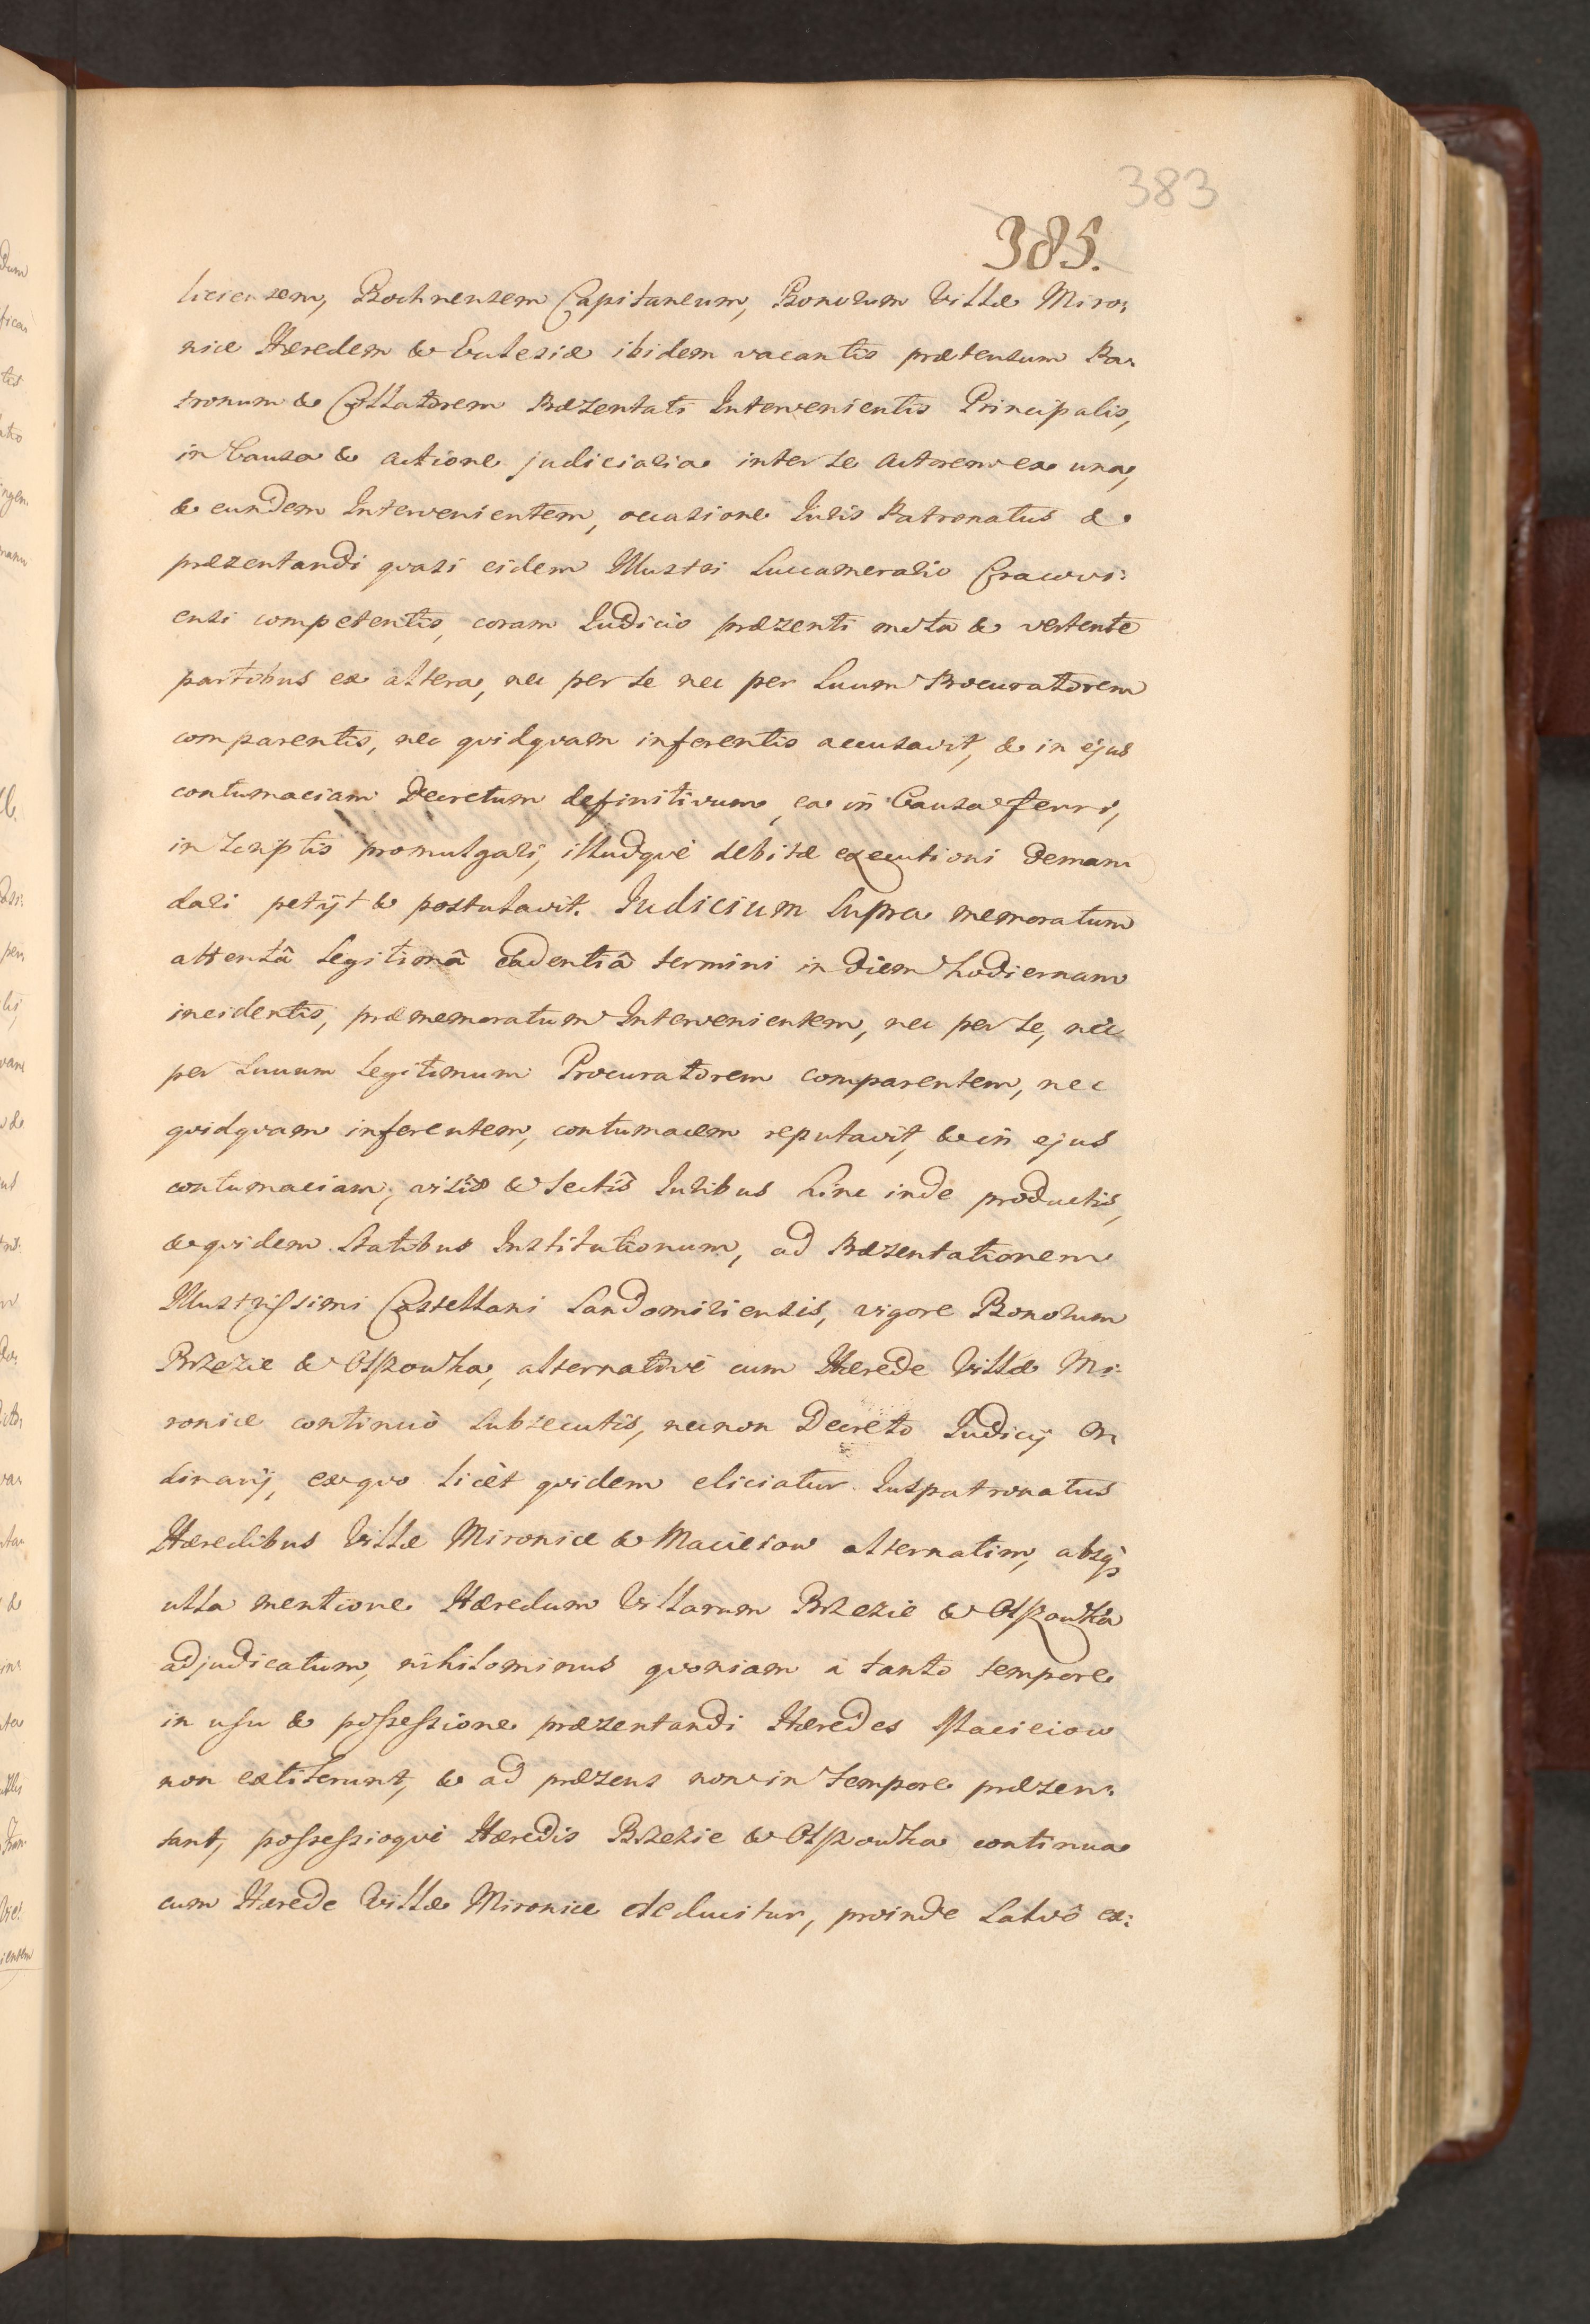 383
385.
liciensem, Bochnensem Capitaneum, Bonorum Villæ Miro:
nice Hæredem & Eclesiæ ibidem vacantis prætensum Pa:
tronum & Collatorem Præzentati Intervenientis Principalis,
in Causa & actione judiciaria inter se Actorem ex una,
& eundem Intervenientem, occasione Iuris Patronatus &
præzentandi quasi eidem Illustri Succamerario Cracovi:
ensi competentis, coram Iudicio præzenti mota & vertente
partibus ex altera, nec per se nec per Suum Procuratorem
comparentis, nec quidquam inferentis accusavit, & in ejus
contumaciam Decretum definitivum, ea in Causa ferri,
in Scriptis promulgari, illudquè debitæ executioni deman
dari petijt & postulavit. Iudicium Supra memoratum
attentâ legitimâ cadentiâ termini in diem hodiernam
incidentis, præmemoratum Intervenientem, nec per se, nec
per Suuum legitimum Procuratorem comparentem, nec
quidquam inferentem, contumacem reputavit, & in ejus
contumaciam, visis & lectis Iuribus hinc inde productis,
& quidem Statibus Institutionum, ad Præzentationem
Illustrissimi Castellani Sandomiriensis, vigore Bonorum
Brzezie & Olszowka, alternativè cum Hærede Villæ Mi:
ronice continuò Subsecutis, necnon Decreto Iudicij Or
dinarij, ex quo licèt quidem eliciatur Iuspatronatus
Hæredibus Villæ Mironice & Macieiow alternatim, absq;
ulla mentione Hæredum Villarum Brzezie & Olszowka
adjudicatum, nihilominus quoniam à tanto tempore
in usu & possessione præzentandi Hæredes Macieiow
non extiterunt, & ad præzens non in tempore præzen:
tant, possessioquè Hæredis Brzezie & Olszowka continua
cum Hærede Villæ Mironice deducitur, proinde Salvô ex: